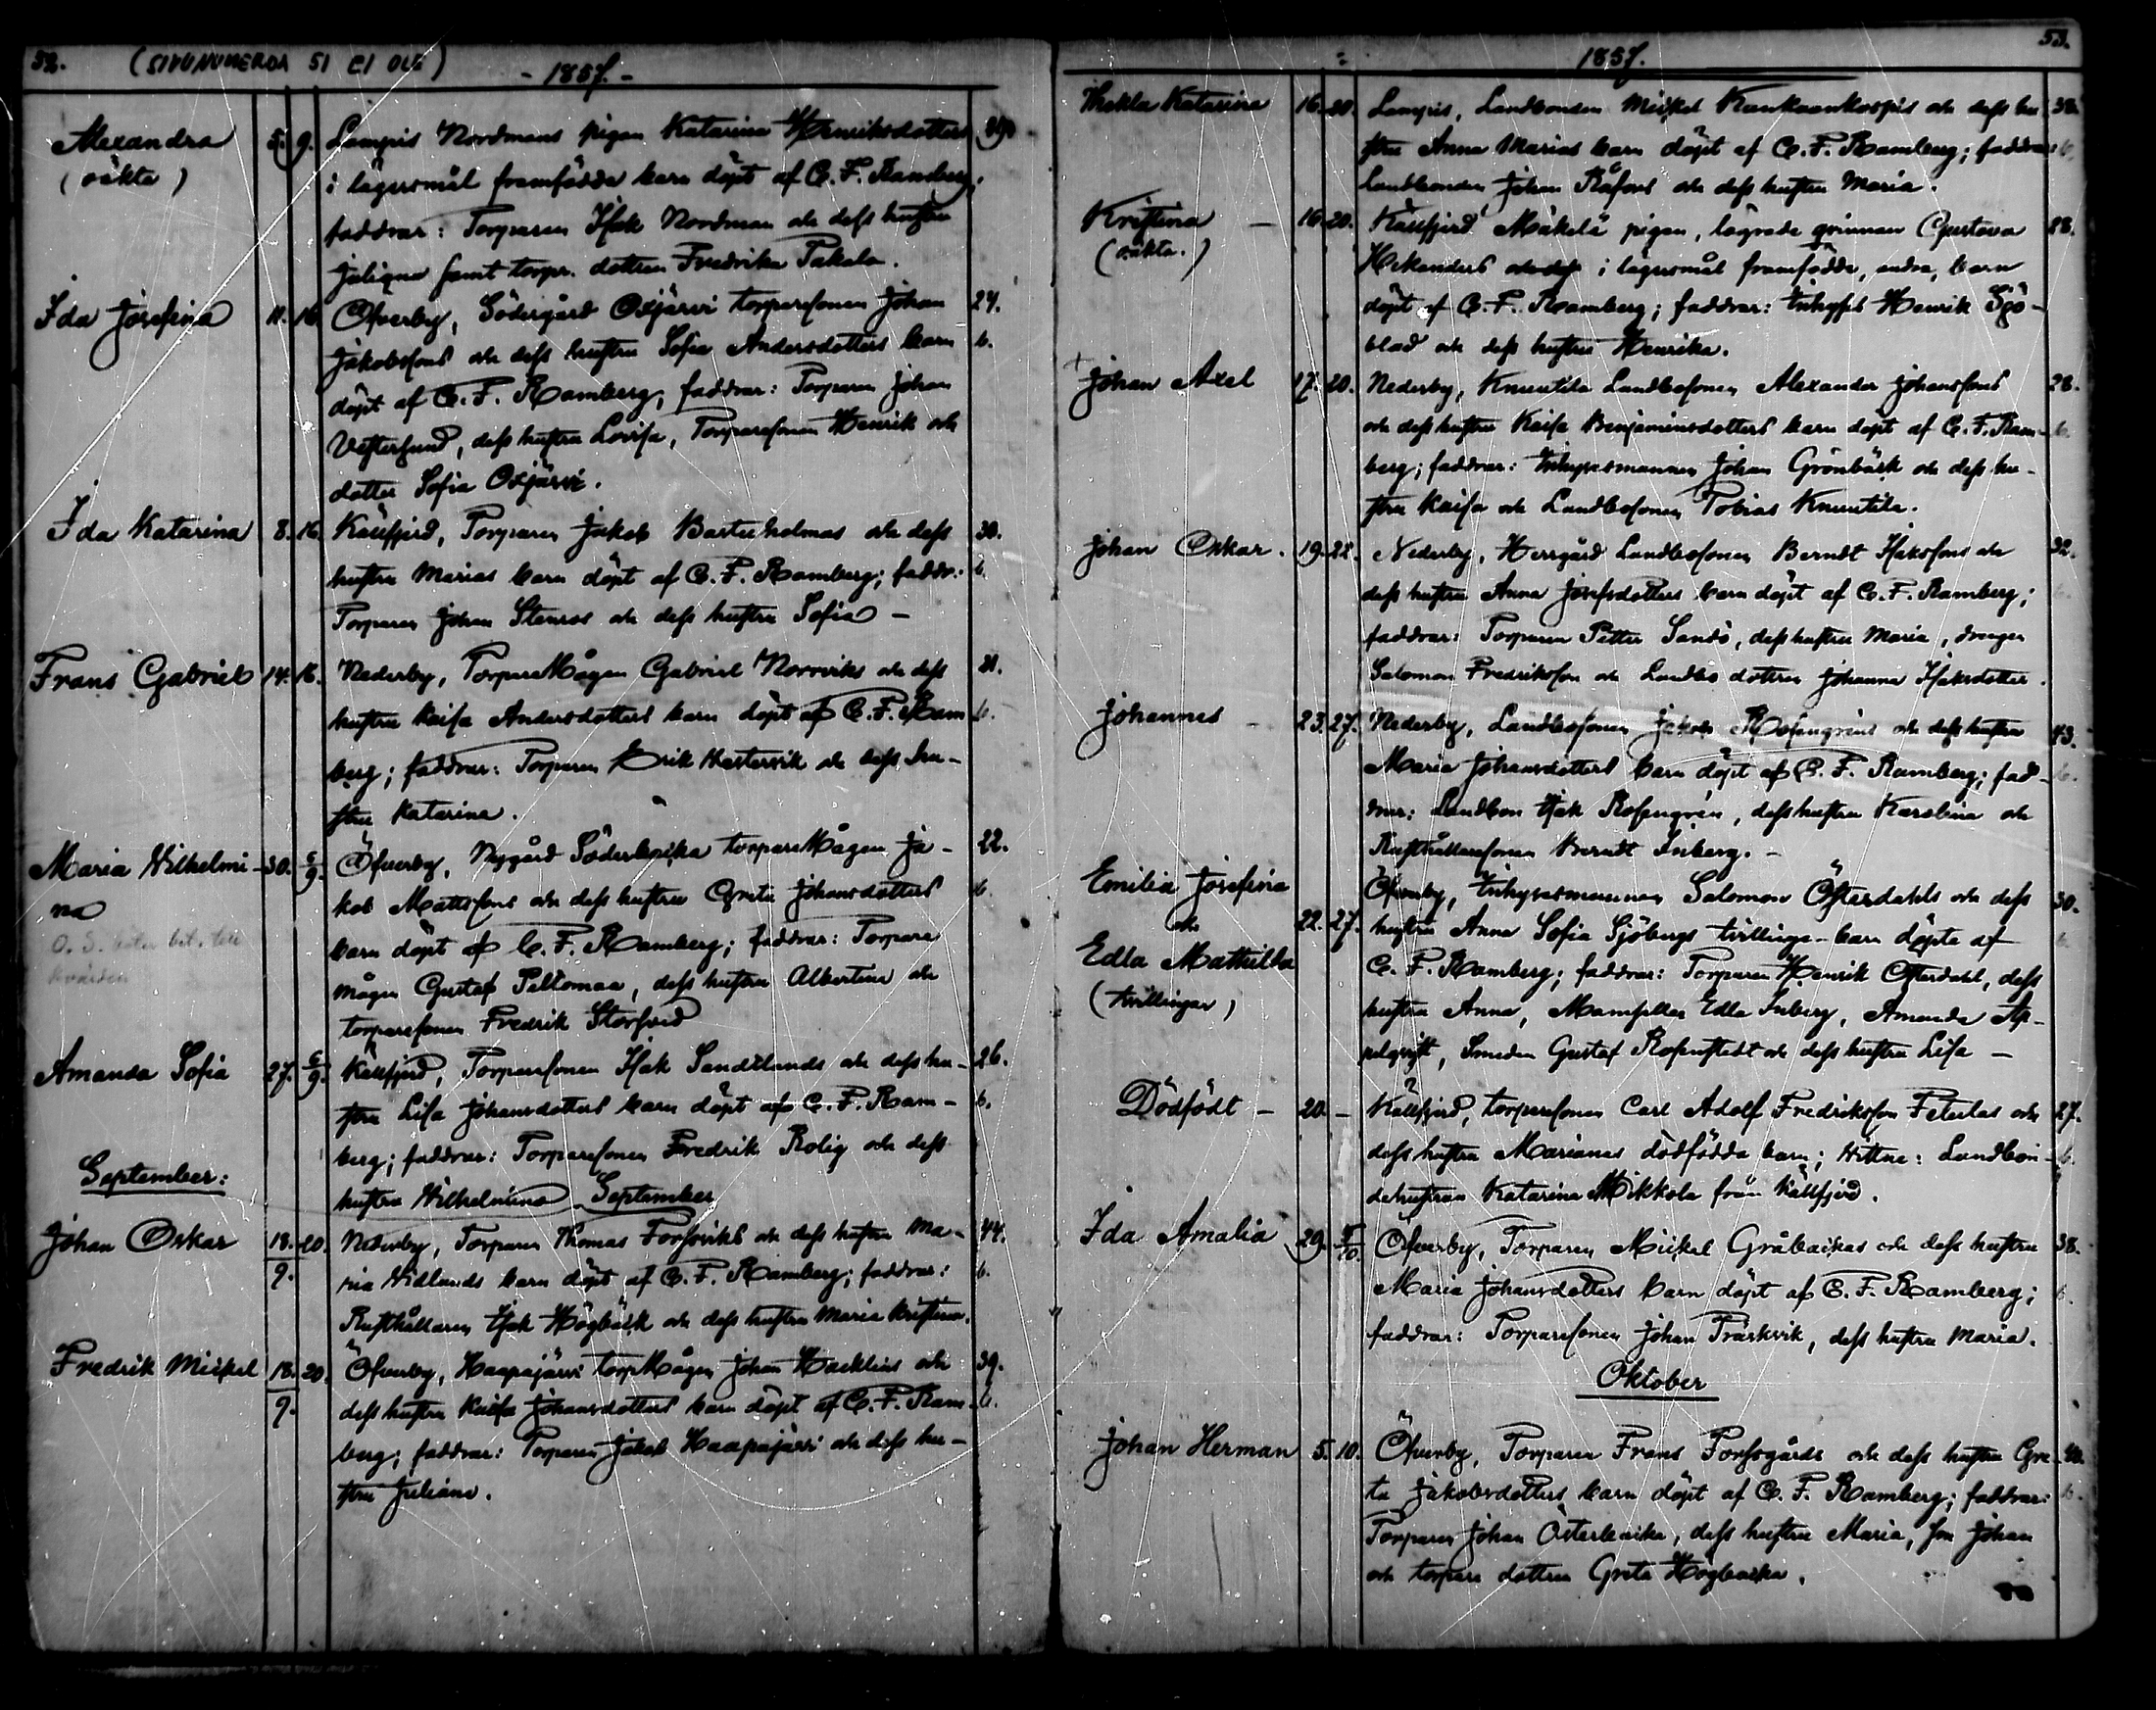 52. (SIVUNUMEROA 51 EI OLE)
- 1857. -
Alexandra 5. 9. Lampis Nordmans pigan Katarina Henriksdotters
(oäkta) i lägersmål framfödda barn döpt af C. F. Ramberg;
faddrar: Torparen Isak Nordman och dess hustru
samt torpr. dottren Fredrika Takala.
Ida Josefina 11. 16. Öfverby, Södergård Oxjärvi torparesonen Johan 24.
Jakobssons och dess hustru Sofia Andersdotters barn b.
döpt af C. F. Ramberg; faddrar: Torparen Johan
Vestersund, dess hustru Lovisa, Torparesonen Henrik och
dotter Sofia Oxjärvi.
Ida Katarina 8. 16. Källfjerd, Torparen Jakob Basteeholmas och dess 30.
hustru Marias barn döpt af C. F. Ramberg; faddr: b.
Torparen Johan Stenros och dess hustru Sofia -
Frans Gabriel 14. 16. Nederby, Torparemågen Gabriel Norrviks och dess 21.
hustru Kaisa Andersdotters barn döpt af C. F. Ram b.
berg; faddrar: Torparen Erik Westervik och dess hu-
stru Katarina.
Maria Wilhelmi- 30. 6/9. Öfverby, Nygård Söderbacka torparemågen Ja- 22.
na kob Mattssons och dess hustru Greta Johansdotters b.
barn döpt af C. F. Ramberg; faddrar: Torpare
mågen Gustaf Peltomaa, dess hustru Albertina och
torparesonen Fredrik Storsved
Amanda Sofia 27. 6/9. Källfjerd, Torparesonen Isak Sandslunds och dess hu- 26.
stru Lisa Johansdotters barn döpt af C. F. Ram- b.
berg; faddrar: Torparesonen Fredrik Rolig och dess
September: hustru Wilhelmina September
Johan Oskar 18. 20. Nederby, Torparen Thomas Forsviks och dess hustru Ma- 44.
9. ria Widlunds barn döpt af C. F. Ramberg; faddrar: b.
Rusthållaren Isak Högbäck och dess hustru Maria Kristina.
Fredrik Mickel 18. 20. Öfverby, Haapajärvi torpmågen Johan Hacklins och 39.
9. dess hustru Kaisa Johansdotters barn döpt af C. F. Ram- b.
berg; faddrar: Torparen Jakob Haapajärvi och dess hu-
stru Juliana.
53.
1857.
Thekla Katarina 16. 20. Lampis, Landbonden Mickel Kankaankorpis och dess hu 38.
stru Anna Marias barn döpt af C. F. Ramberg; faddrar: b.
Landbonden Johan Råfons och dess hustru Maria.
Kristina - 16. 20. Källfjerd Mäkelä pigan, lägrade qvinnan Gustava 28.
(oäkta.) Hekanders i lägersmål framfödde, andra, barn
döpt af C. F. Ramberg; faddrar: Inhyses Henrik Sjö-
blad och dess hustru Henrika.
+ Johan Axel 17. 20. Nederby, Knuutila Landbosonen Alexander Johanssons 28.
och dess hustru Kaisa Benjaminsdotters barn döpt af C. F. Ram- b.
berg; faddrar: Inhysesmannen Johan Grönbäck och dess hu-
stru Kaisa och Landbosonen Tobias Knuutila.
Johan Oskar. 19. 22. Nederby, Herrgård Landbosonen Berndt Isakssons och 32.
dess hustru Anna Josefsdotters barn döpt af C. F. Ramberg; b.
faddrar: Torparen Petter Sandö, dess hustru Maria, drengen
Salomon Fredriksson och Landbo dottren Johanna Isaksdotter.
Johannes - 23. 27. Nederby, Landbosonen Jakob Rosengrens och dess hustru 43.
Maria Johansdotters barn döpt af C. F. Ramberg; fad- b.
drar: Landbon Isak Rosengren, dess hustru Karolina och
Rusthållaresonen Berndt Inberg. -
Emilia Josefina Öfverby, Inhysesmannen Salomon Österdahls och dess 30.
och 22. 27. hustru Anna Sofia Sjöbergs tvillinge-barn döpta af b.
Edla Mathilda C. F. Ramberg; faddrar: Torparen Henrik Österdahl, dess
(tvillingar) hustru Anna, Mamseller Edla Inberg, Amanda Ap-
pelqvist, Smeden Gustaf Rosenstedt och dess hustru Lisa -
Dödfödt - 20. - Källfjerd, torparesonen Carl Adolf Fredriksson Feterlas och 27.
dess hustru Marianas dödfödda barn; Wittne: Landbon- b.
dehustrun Katarina Mikkola från Källfjerd.
Ida Amalia 29. 5/10. Öfverby, Torparen Mickel Gråbackas och dess hustru 38.
Maria Johansdotters barn döpt af C. F. Ramberg; b.
faddrar: Torparesonen Johan Träskvik, dess hustru Maria.
Oktober
Johan Herman 5. 10. Öfverby, Torparen Frans Forssgårds och dess hustru Gre- 40.
ta Jakobsdotters barn döpt af C. F. Ramberg; faddrar: b.
Torparen Johan Österbacka, dess hustru Maria, son Johan
och torpare dottren Greta Högbacka.